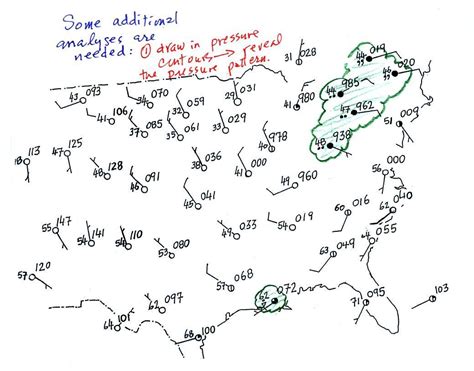 Some additional
analyses are
needed: ① draw in pressure
contours → reveal
the pressure pattern.
31 028
44 019
46 020
43 093
34 070
32 059
29 031
41 980
44 985
41 106
37 085
35 061
33 029
47 962
51 009
113
47 125
40 978
48 938
48 128
46 091
38 036
41 000
49 960
56 000
45 041
62 040
55 147
54 141
54 110
53 080
49 033
54 019
60 016
64 055
63 049
57 120
57 068
62 072
62 097
71 095
103
64 101
68 100